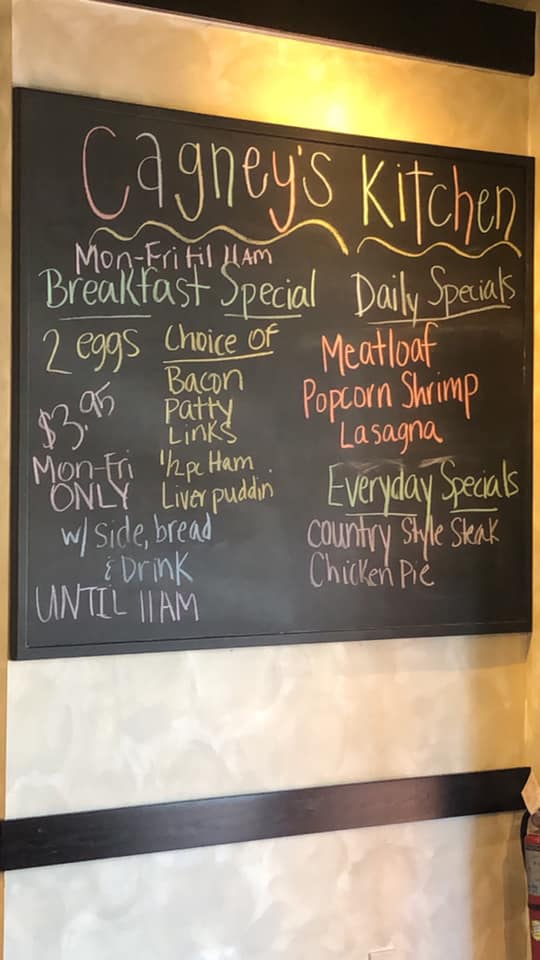 Cagney's Kitchen
Mon-Fri til 11AM
Breakfast Special
2 eggs
$3.95
Mon-Fri
ONLY
Choice Of
Bacon
Patty
Links
1/2 pc Ham
Liver puddin
w/ side, bread
& Drink
UNTIL 11AM
Daily Specials
Meatloaf
Popcorn Shrimp
Lasagna
Everyday Specials
Country Style Steak
Chicken Pie